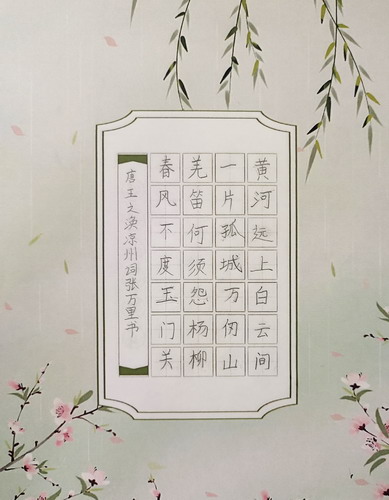 黄河远上白云间
一片孤城万仞山
羌笛何须怨杨柳
春风不度玉门关
唐王之涣凉州词张万里书